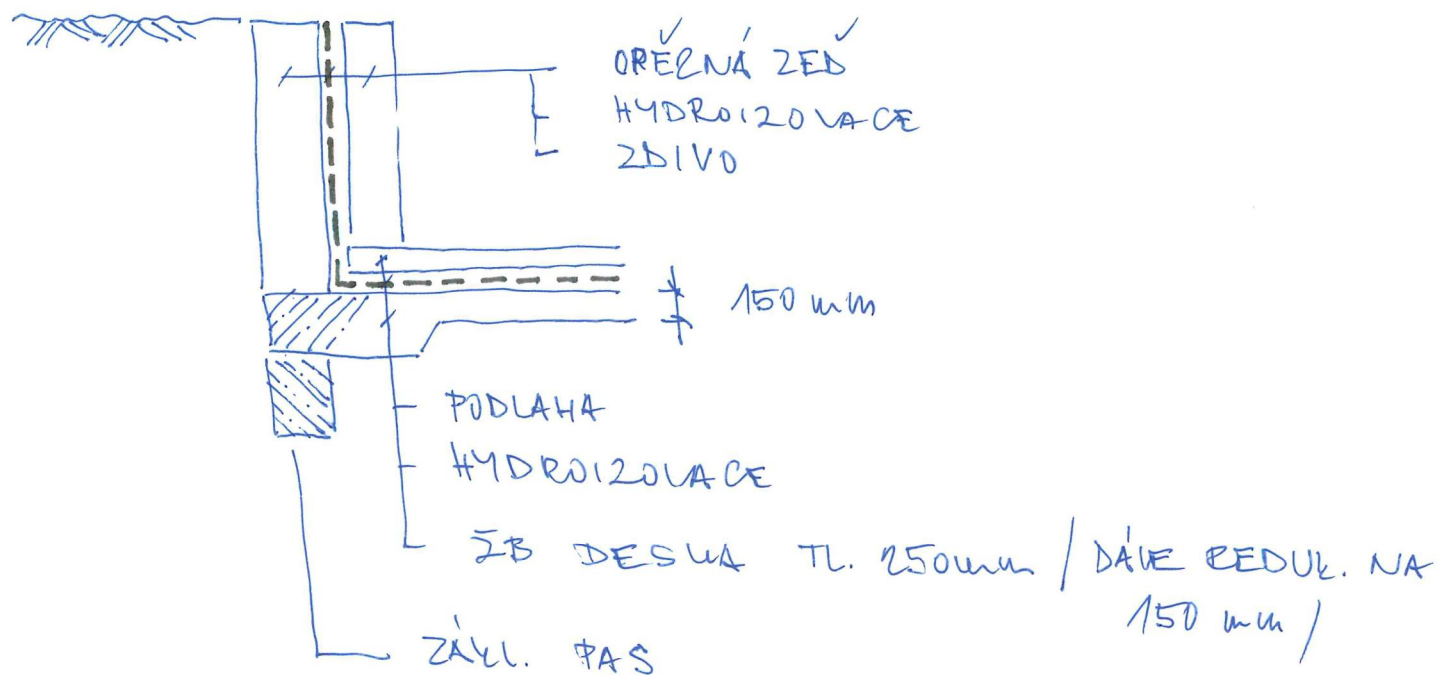 OPĚRNÁ ZEĎ
HYDROIZOVACE
ZDIVO
150 mm
PODLAHA
HYDROIZOVACE
ŽB DESKA TL. 250mm / DÁLE REDUK. NA
150 mm /
ZÁKL. PAS